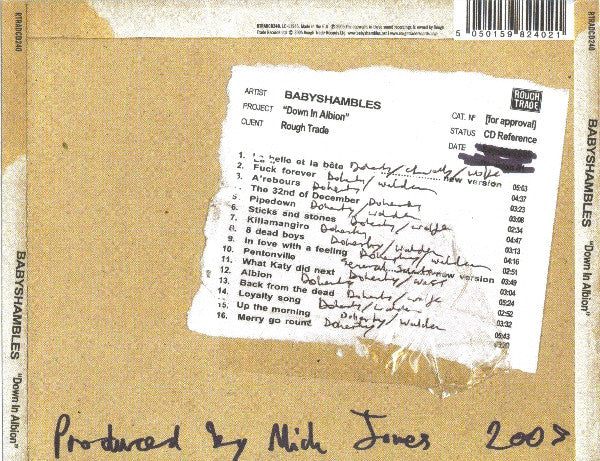 RTRADCD240
5 050159 824021
RTRADCD240
ROUGH TRADE
ARTIST BABYSHAMBLES
PROJECT "Down In Albion"
CLIENT Rough Trade
CAT. Nº [for approval]
STATUS CD Reference
DATE
1. La belle et la bête Doherty/Chevalley/Wolfe 05:03
2. Fuck forever Doherty/Walden new version 04:37
3. A'rebours Doherty/Walden 03:23
4. The 32nd of December Doherty 03:08
5. Pipedown Doherty/Walden 02:34
6. Sticks and stones Doherty/Wolfe 04:47
7. Killamangiro Doherty 03:13
8. 8 dead boys Doherty/Walden 04:16
9. In love with a feeling Doherty/Walden 02:51
10. Pentonville General 03:49
11. What Katy did next Doherty/West new version 03:04
12. Albion Doherty 05:24
13. Back from the dead Doherty/Wolfe 02:52
14. Loyalty song Doherty/Walden 03:32
15. Up the morning Doherty/Walden 05:43
16. Merry go round Doherty
BABYSHAMBLES "Down In Albion"
BABYSHAMBLES "Down In Albion"
Produced by Mick Jones 2005